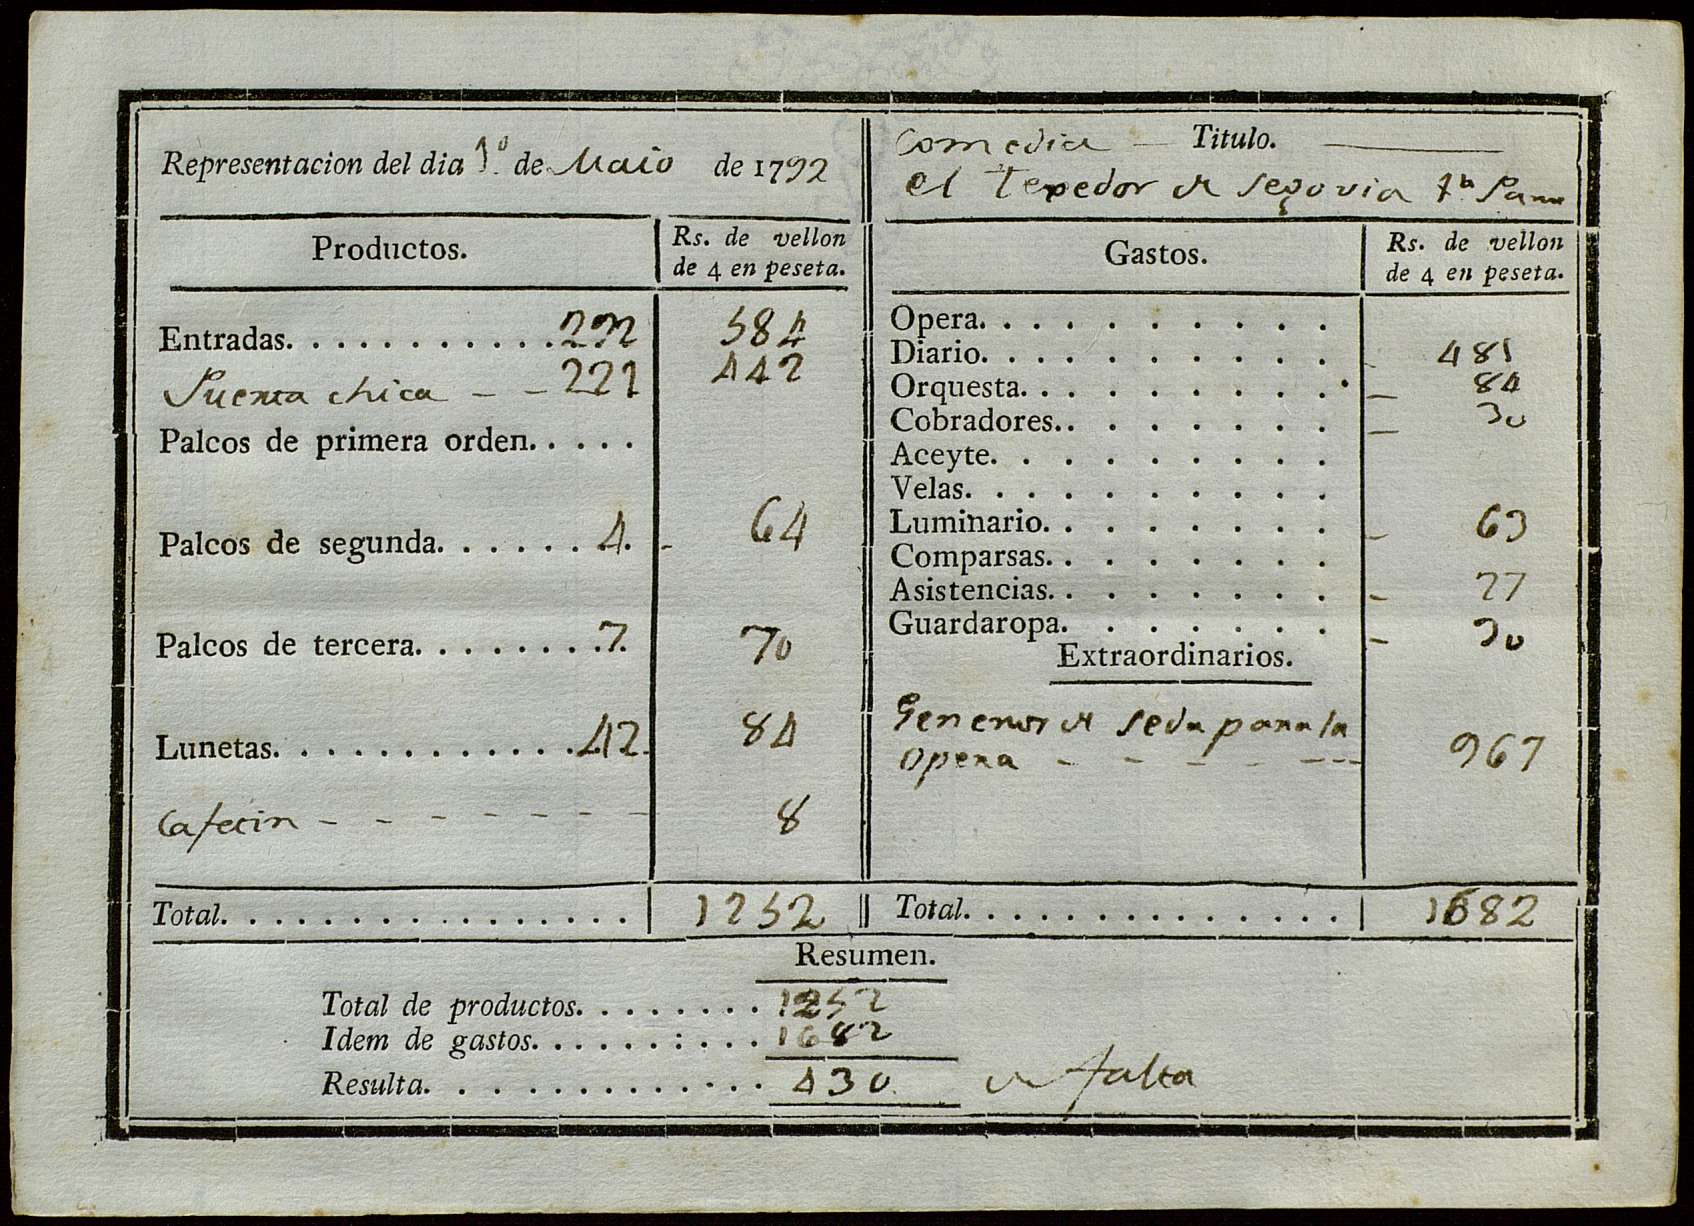 Representacion del dia 1º de Maio de 1792
Comedia — Titulo. —
el texedor de segovia 1ª Parte
Productos.
Rs. de vellon
de 4 en peseta.
Entradas. . . . . . . . . . . . 292 584
Puerta chica - - 221 442
Palcos de primera orden. . . . .
Palcos de segunda. . . . . . 4. - 64
Palcos de tercera. . . . . . . . 7. 70
Lunetas. . . . . . . . . . . . . 42. 84
Cafetin - - - - - - - 8
Total. . . . . . . . . . . . . . . . 1252
Gastos.
Rs. de vellon
de 4 en peseta.
Opera. . . . . . . . . .
Diario. . . . . . . . . . - 481
Orquesta. . . . . . . . . - 84
Cobradores. . . . . . . . - 30
Aceyte. . . . . . . . . .
Velas. . . . . . . . . .
Luminario. . . . . . . . - 63
Comparsas. . . . . . . .
Asistencias. . . . . . . . - 27
Guardaropa. . . . . . . - 30
Extraordinarios.
Generos de seda para la
opera - - - - - - - 967
Total. . . . . . . . . . . . . . . 1682
Resumen.
Total de productos. . . . . . . . 1252
Idem de gastos. . . . . . : . . . 1682
Resulta. . . . . . . . . . . . . . 430 de falta